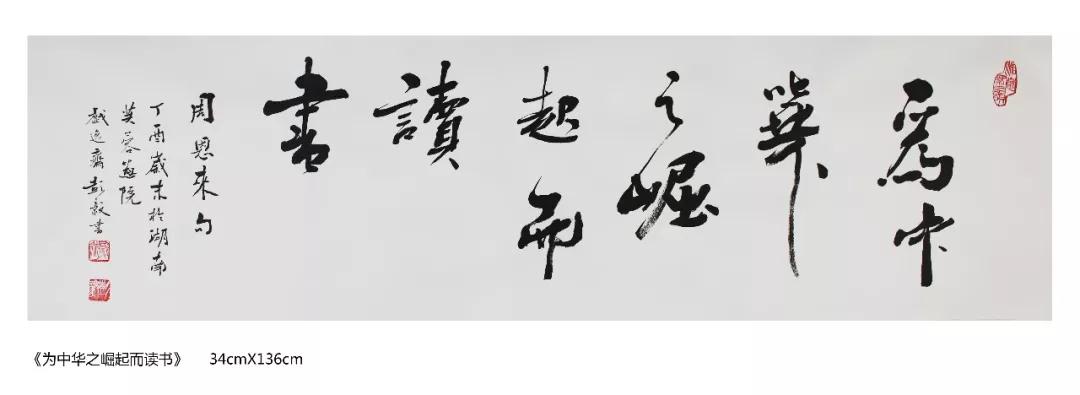 爲中
華
之崛
起而
讀
書
周恩來句
丁酉歲末於湖南
芙蓉畫院
戲逸齋彭毅書
《为中华之崛起而读书》 34cmX136cm